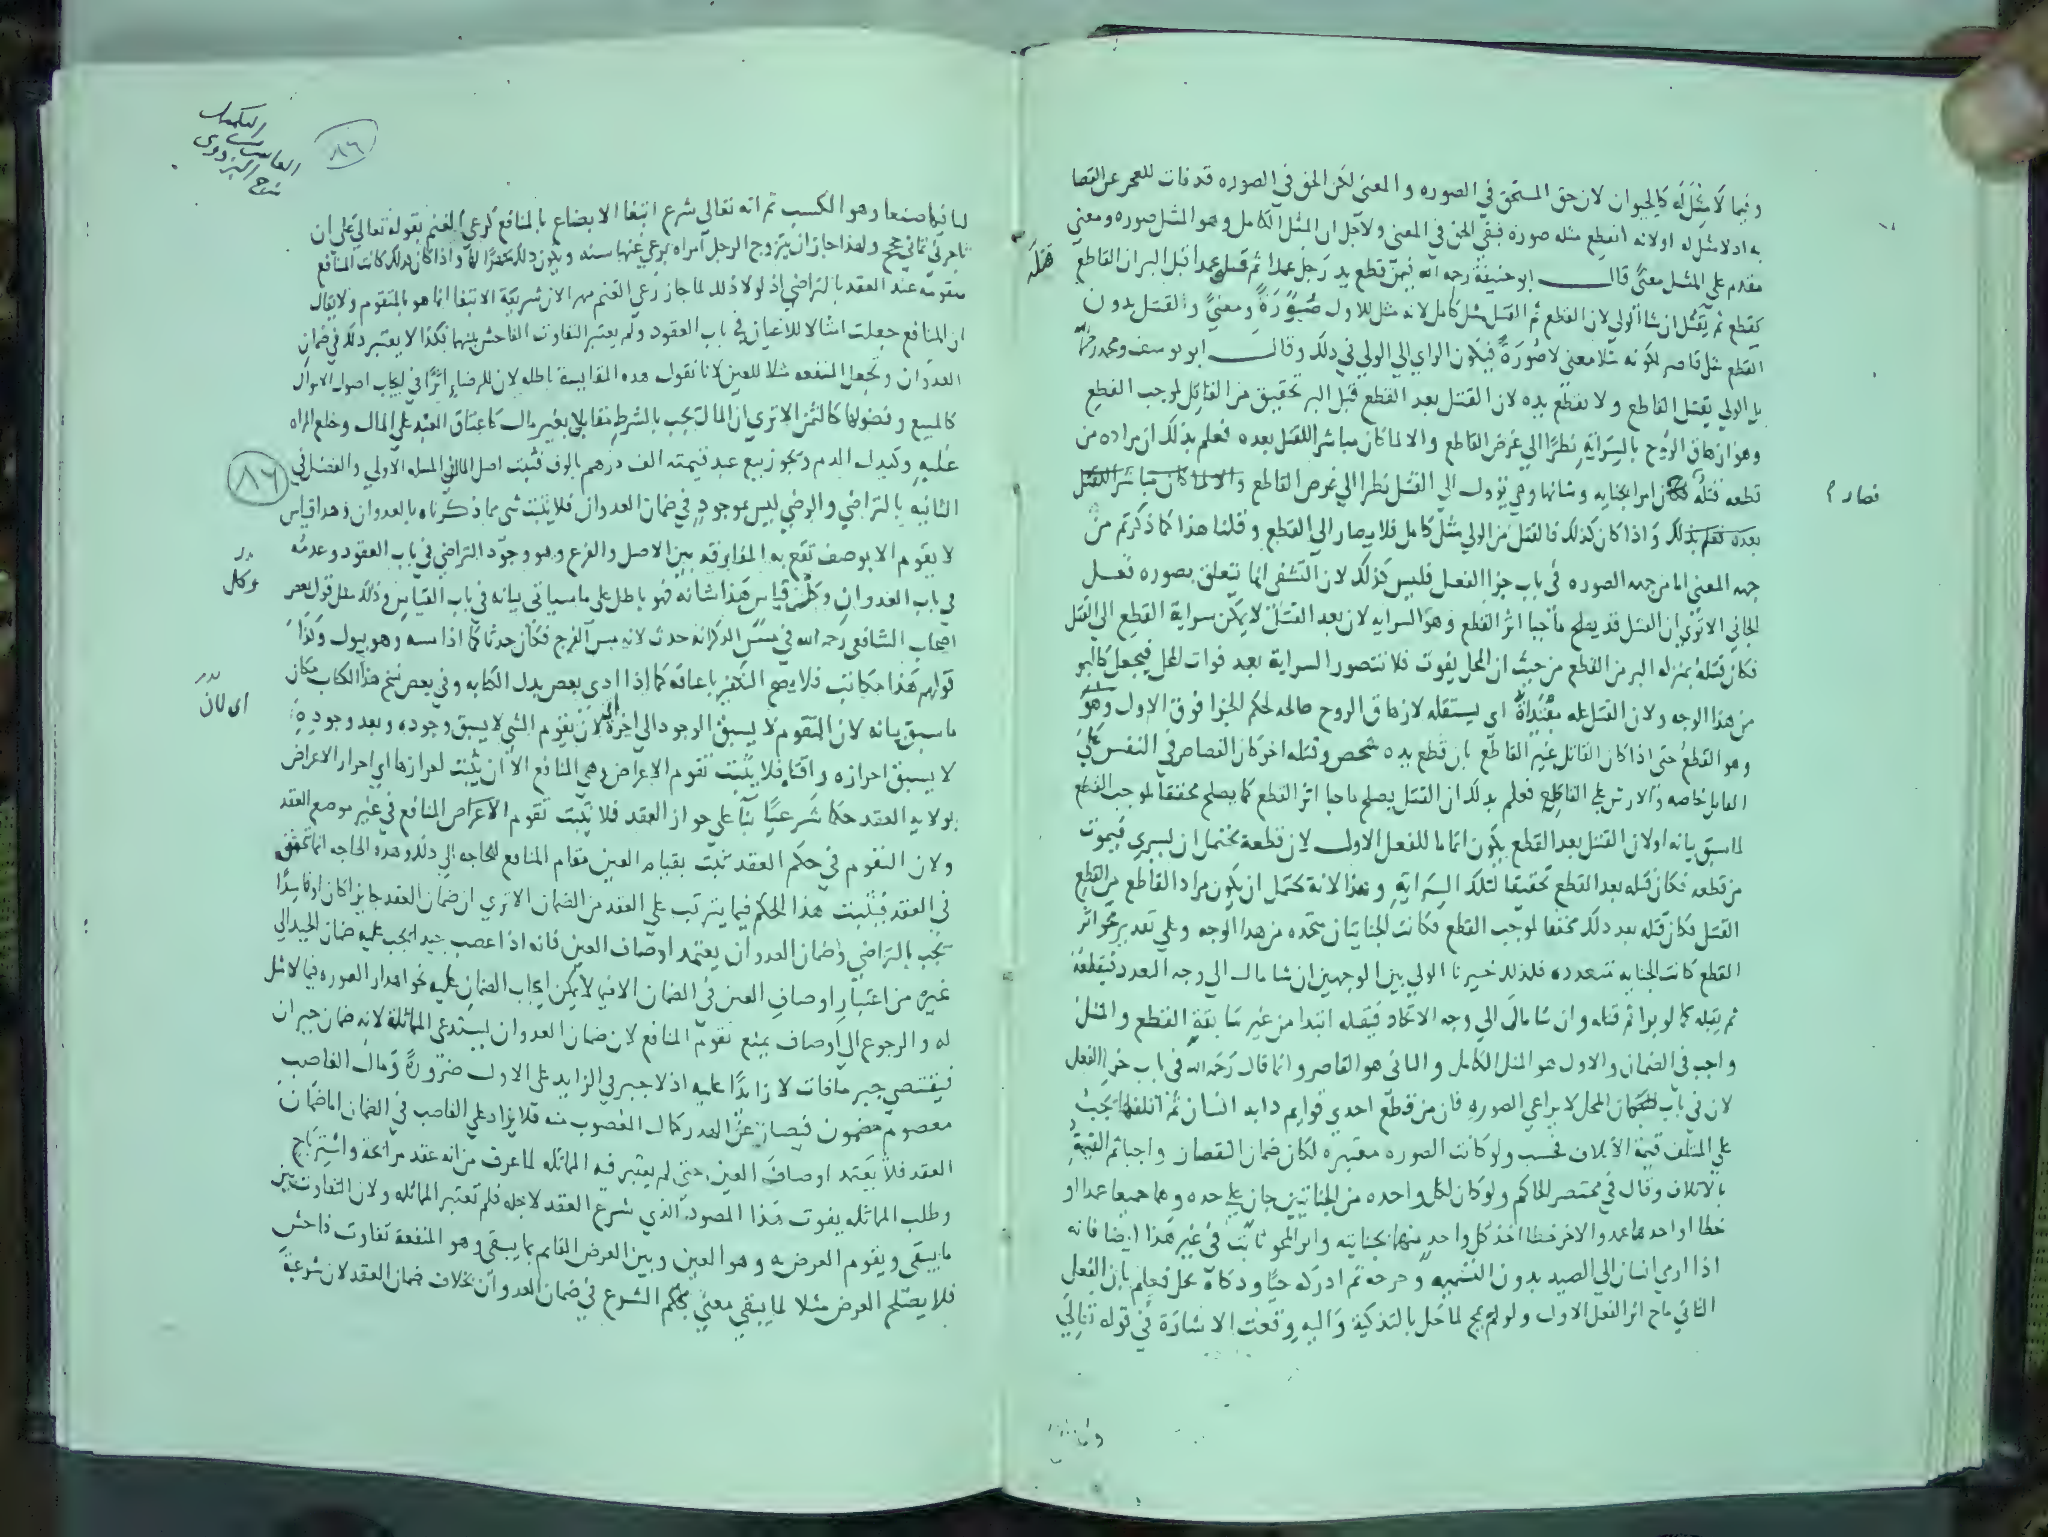 وفيما لا مثل له كالحيوان لان حق المستحق في الصوره والمعنى لكن الحق في الصوره قد فات للعجز عن القضا
به اذ لا مثل له اولانه انقطع مثله صورة فبقي الحق في المعنى ولاجل ان المثل الكامل وهو المثل صوره ومعنى
مقدم على المثل معنى قال ابو حنيفة رحمه الله فيمن قطع يد رجل عمدا ثم قتله عمدا قبل البر ان القاطع
يقطع ثم يقتل ان شا الولي لان القطع ثم القتل مثل كامل لانه مثل للاول صورة ومعنى والقتل بدون
القطع مثل قاصر لكونه مثلا معنى لا صورة فيكون الراي الي الولي في ذلك وقال ابو يوسف ومحمد رحمهما
بل الولي يقتل القاطع ولا يقطع يده لان القتل بعد القطع قبل البر تحقيق من القاتل لموجب القطع
وهو ازهاق الروح بالسراية نظرا الي غرض القاطع والا لما كان مباشر القتل بعده فعلم بذلك ان مراده من
قطعه قتله فكان امر الجنايه وشانها وهي تؤول الي القتل نظرا الي غرض القاطع والا لما كان مباشر القتل
بعده فعلم بذلك واذا كان كذلك فالقتل من الولي مثل كامل فلا يصار الي القطع وقلنا هذا كما ذكرتم من
جهه المعنى اما من جهه الصوره في باب جزا الفعل فليس كذلك لان التشفي انما يتعلق بصوره فعل
الجاني الا تري ان القتل قد يصلح ماحيا اثر القطع وهو السرايه لان بعد القتل لا يمكن سراية القطع الي القتل
فكان قتله بمنزله البر من القطع من حيث ان المحل يفوت فلا تتصور السراية بعد فوات المحل فيجعل كالبر
من هذا الوجه ولان القتل عله مبتداة اي مستقله لازهاق الروح صالحه لحكم الجزا فوق الاول وهو
وهو القطع حتى اذا كان القاتل غير القاطع بان قطع يده شخص وقتله اخر كان القصاص في النفس على
القاتل خاصه والارش على القاطع فعلم بذلك ان القتل يصلح ماحيا اثر القطع كما يصلح محققا لموجب القطع
لما سبق بيانه اولان القتل بعد القطع يكون اتماما للفعل الاول لان قطعه يحتمل ان يسري فيموت
من قطعه فكان قتله بعد القطع تحقيقا لتلك السراية وهذا لانه يحتمل ان يكون مراد القاطع من القطع
القتل فكان قتله بعد ذلك محققا لموجب القطع فكانت الجنايتان متحده من هذا الوجه وعلى تقدير محو اثر
القطع كانت الجنايه متعدده فلذلك خيرنا الولي بين الوجهين ان شا مال الي وجه التعدد فيقطعه
ثم يقتله كما لو برا ثم قتله وان شا مال الي وجه الاتحاد فيقتله ابتدا من غير سابقة القطع والمثل
واجب في الضمان والاول هو المثل الكامل والثاني هو القاصر وانما قال رحمه الله في باب جزا الفعل
لان في باب ضمان المحل لا يراعي الصوره فان من قطع احدي قوايم دابه انسان ثم اتلفها يجب
على المتلف قيمة الاتلاف فحسب ولو كانت الصوره معتبره لكان ضمان النقصان واجبا ثم القيمة
بالاتلاف وقال في مختصر الحاكم ولو كان لكل واحده من الجنايتين جان على حده وهما جميعا عمدا او
خطا او احدهما عمد والاخر خطا اخذ كل واحد منهما بجنايته واثر المحو ثابت في غير هذا ايضا فانه
اذا رمي انسان الي الصيد بدون التسميه وجرحه ثم ادركه حيا وذكاه يحل فعلم بان الفعل
الثاني ماح اثر الفعل الاول ولو لم يمح لما حل بالتذكية واليه وقعت الاشارة في قوله تعالي
قتله
فصار ؟
التكميل
الفاسي
شرح البزدوي
٨٦
لنا فيما صنعا وهو الكسب ثم انه تعالي شرع ابتغا الابضاع بالمنافع كرعي الغنم بقوله تعالي على ان
تاجرني ثماني حجج ولهذا جاز ان يتزوج الرجل امراه برعي غنمها سنه ويكون ذلك مهرا لها واذا كان كذلك كانت المنافع
متقومه عند العقد بالتراضي اذ لولا ذلك لما جاز رعي الغنم مهرا لان شريعة الابتغا انما هو بالمتقوم ولا يقال
ان المنافع جعلت امثالا للاعيان في باب العقود ولم يعتبر التفاوت الفاحش بينهما فكذا لا يعتبر ذلك في ضمان
العدوان وتجعل المنفعه مثلا للعين لانا نقول هذه المقايسة باطله لان للرضا اثرا في ايجاب اصول الاموال
كالمبيع وفضولها كالثمن الا تري ان المال يجب بالشرط مقابلا بغير مال كاعتاق العبد على المال وخلع المراه
عليه وكبدل الدم ويجوز بيع عبد قيمته الف درهم بالوف فثبت اصل المال في المسله الاولي والفضل في
٨٦
الثانيه بالتراضي والرضي ليس بموجود في ضمان العدوان فلا يثبت شي مما ذكرناه بالعدوان وهذا قياس
لا يقوم الا بوصف تقع به المفارقه بين الاصل والفرع وهو وجود التراضي في باب العقود وعدمه
في باب العدوان وكل قياس هذا شانه فهو باطل على ما سياتي بيانه في باب القياس وذلك مثل قول بعض
وكل
اصحاب الشافعي رحمه الله في مس الذكر انه حدث لانه مس الفرج فكان حدثا كما اذا مسه وهو يبول وكذا
قولهم هذا مكاتب فلا يصح التكفير باعتاقه كما اذا ادي بعض بدل الكتابه وفي بعض نسخ هذا الكتاب مكان
اي لان
ما سبق بيانه لان التقوم لا يسبق الوجود الي اخره لان تقوم الشي لا يسبق وجوده وبعد وجوده
لا يسبق احرازه واقتناه فلا يثبت تقوم الاعراض وهي المنافع الا ان يثبت احرازها اي احراز الاعراض
بولايه العقد حكما شرعيا بنا على جواز العقد فلا يثبت تقوم الاعراض المنافع في غير موضع العقد
ولان التقوم في حكم العقد ثبت بقيام العين مقام المنافع للحاجه الي ذلك وهذه الحاجه انما تتحقق
في العقد فيثبت هذا الحكم فيما يترتب على العقد من الضمان الا تري ان ضمان العقد جايزا كان او فاسدا
يجب بالتراضي وضمان العدوان يعتمد اوصاف العين فانه اذا غصب جيدا يجب عليه ضمان الجيد الي
غيره من اعتبار اوصاف العين في الضمان الا فيما لا يمكن ايجاب الضمان عليه نحو اهدار الصوره فيما لا مثل
له والرجوع الي اوصاف يمنع تقوم المنافع لان ضمان العدوان يستدعي المماثلة لانه ضمان جبران
فيقتضي جبر ما فات لا زايدا عليه اذ لا جبر في الزايد على الاول ضرورة ومال الغاصب
معصوم مضمون فيصان عن الهدر كمال المغصوب منه فلا يزاد على الغاصب في الضمان اما ضمان
العقد فلا يعتمد اوصاف العين حتى لم يعتبر فيه المماثله لما عرف من انه عقد مرابحة واسترباح
وطلب المماثله يفوت هذا المقصود الذي شرع العقد لاجله فلم تعتبر المماثله ولان التفاوت بين
ما يبقى ويقوم العرض به وهو العين وبين العرض القايم بما يبقى وهو المنفعة تفاوت فاحش
فلا يصلح العرض مثلا لما يبقي معنى بحكم الشرع في ضمان العدوان بخلاف ضمان العقد لان شرعية